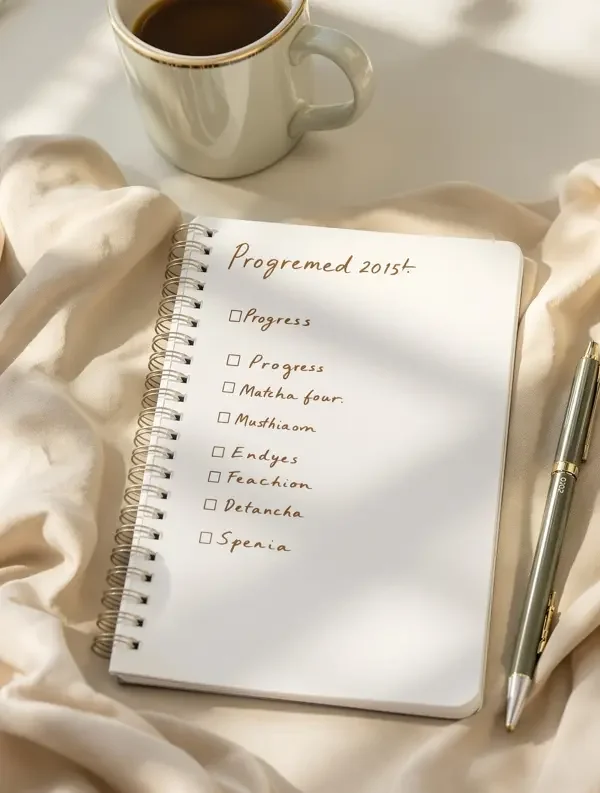 Progremed 2015t.
Progress
Progress
Matcha four.
Musthiaom
Endyes
Feachion
Detancha
Spenia
0202